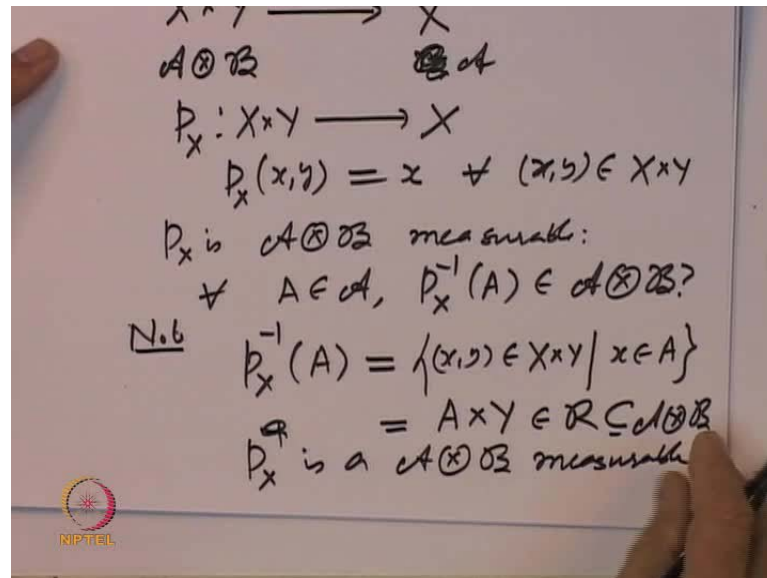 X × Y ⟶ X
𝒜 ⊗ ℬ 𝒜
p_X : X × Y ⟶ X
p_X (x,y) = x ∀ (x,y) ∈ X × Y
p_X is 𝒜 ⊗ ℬ measurable:
∀ A ∈ 𝒜, p_X^{-1}(A) ∈ 𝒜 ⊗ ℬ?
Note p_X^{-1}(A) = {(x,y) ∈ X × Y | x ∈ A}
= A × Y ∈ ℛ ⊆ 𝒜 ⊗ ℬ
p_X is a 𝒜 ⊗ ℬ measurable
NPTEL